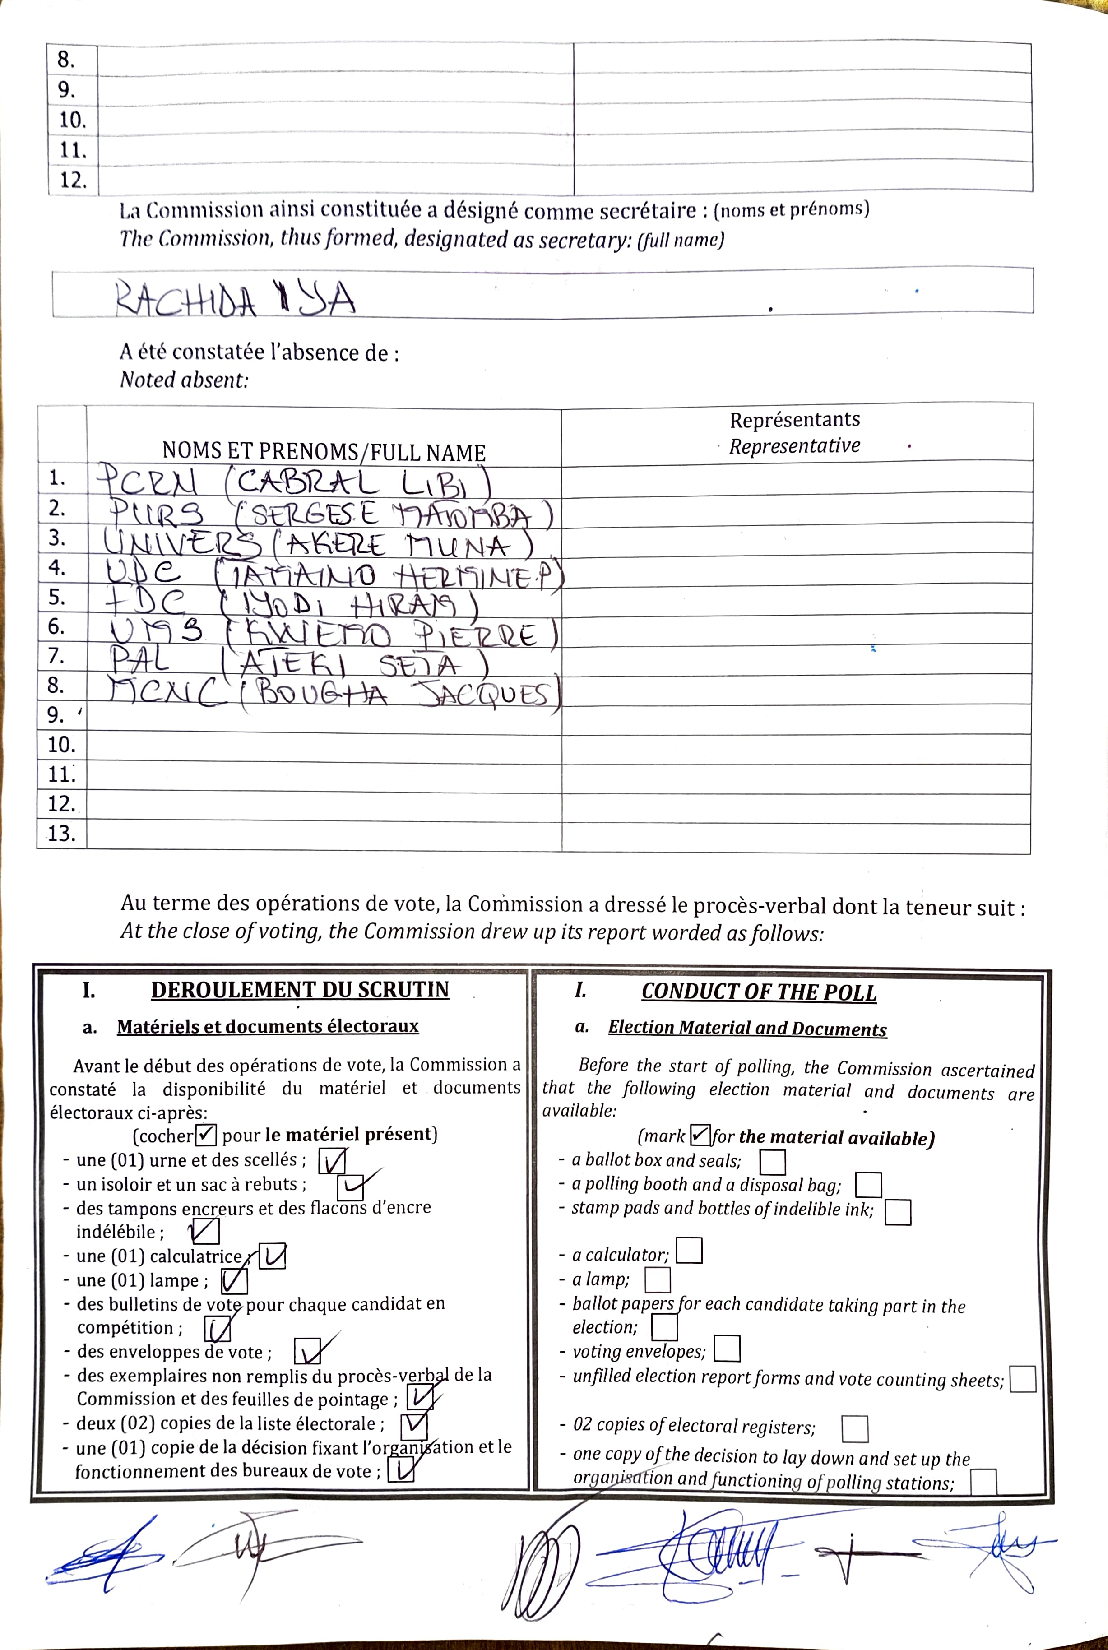 8.
9.
10.
11.
12.
La Commission ainsi constituée a désigné comme secrétaire : (noms et prénoms)
The Commission, thus formed, designated as secretary: (full name)
RACHIDA IYA
A été constatée l'absence de :
Noted absent:
NOMS ET PRENOMS/FULL NAME
Représentants
Representative
1. PCRN (CABRAL LIBI)
2. PURS (SERGESE MATOMBA)
3. UNIVERS (AKERE MUNA)
4. UDC (TAMAINO HERMINE.P)
5. FDC (IYODI HIRAM)
6. UMS (KWEMO PIERRE)
7. PAL (ATEKI SETA)
8. MCNC (BOUGHA JACQUES)
9.
10.
11.
12.
13.
Au terme des opérations de vote, la Commission a dressé le procès-verbal dont la teneur suit :
At the close of voting, the Commission drew up its report worded as follows:
I. DEROULEMENT DU SCRUTIN
a. Matériels et documents électoraux
Avant le début des opérations de vote, la Commission a
constaté la disponibilité du matériel et documents
électoraux ci-après:
(cocher ☑ pour le matériel présent)
- une (01) urne et des scellés ; ☑
- un isoloir et un sac à rebuts ; ☑
- des tampons encreurs et des flacons d'encre
indélébile ; ☑
- une (01) calculatrice ; ☑
- une (01) lampe ; ☑
- des bulletins de vote pour chaque candidat en
compétition ; ☑
- des enveloppes de vote ; ☑
- des exemplaires non remplis du procès-verbal de la
Commission et des feuilles de pointage ; ☑
- deux (02) copies de la liste électorale ; ☑
- une (01) copie de la décision fixant l'organisation et le
fonctionnement des bureaux de vote ; ☑
I. CONDUCT OF THE POLL
a. Election Material and Documents
Before the start of polling, the Commission ascertained
that the following election material and documents are
available:
(mark ☑ for the material available)
- a ballot box and seals; ☐
- a polling booth and a disposal bag; ☐
- stamp pads and bottles of indelible ink; ☐
- a calculator; ☐
- a lamp; ☐
- ballot papers for each candidate taking part in the
election; ☐
- voting envelopes; ☐
- unfilled election report forms and vote counting sheets; ☐
- 02 copies of electoral registers; ☐
- one copy of the decision to lay down and set up the
organisation and functioning of polling stations; ☐